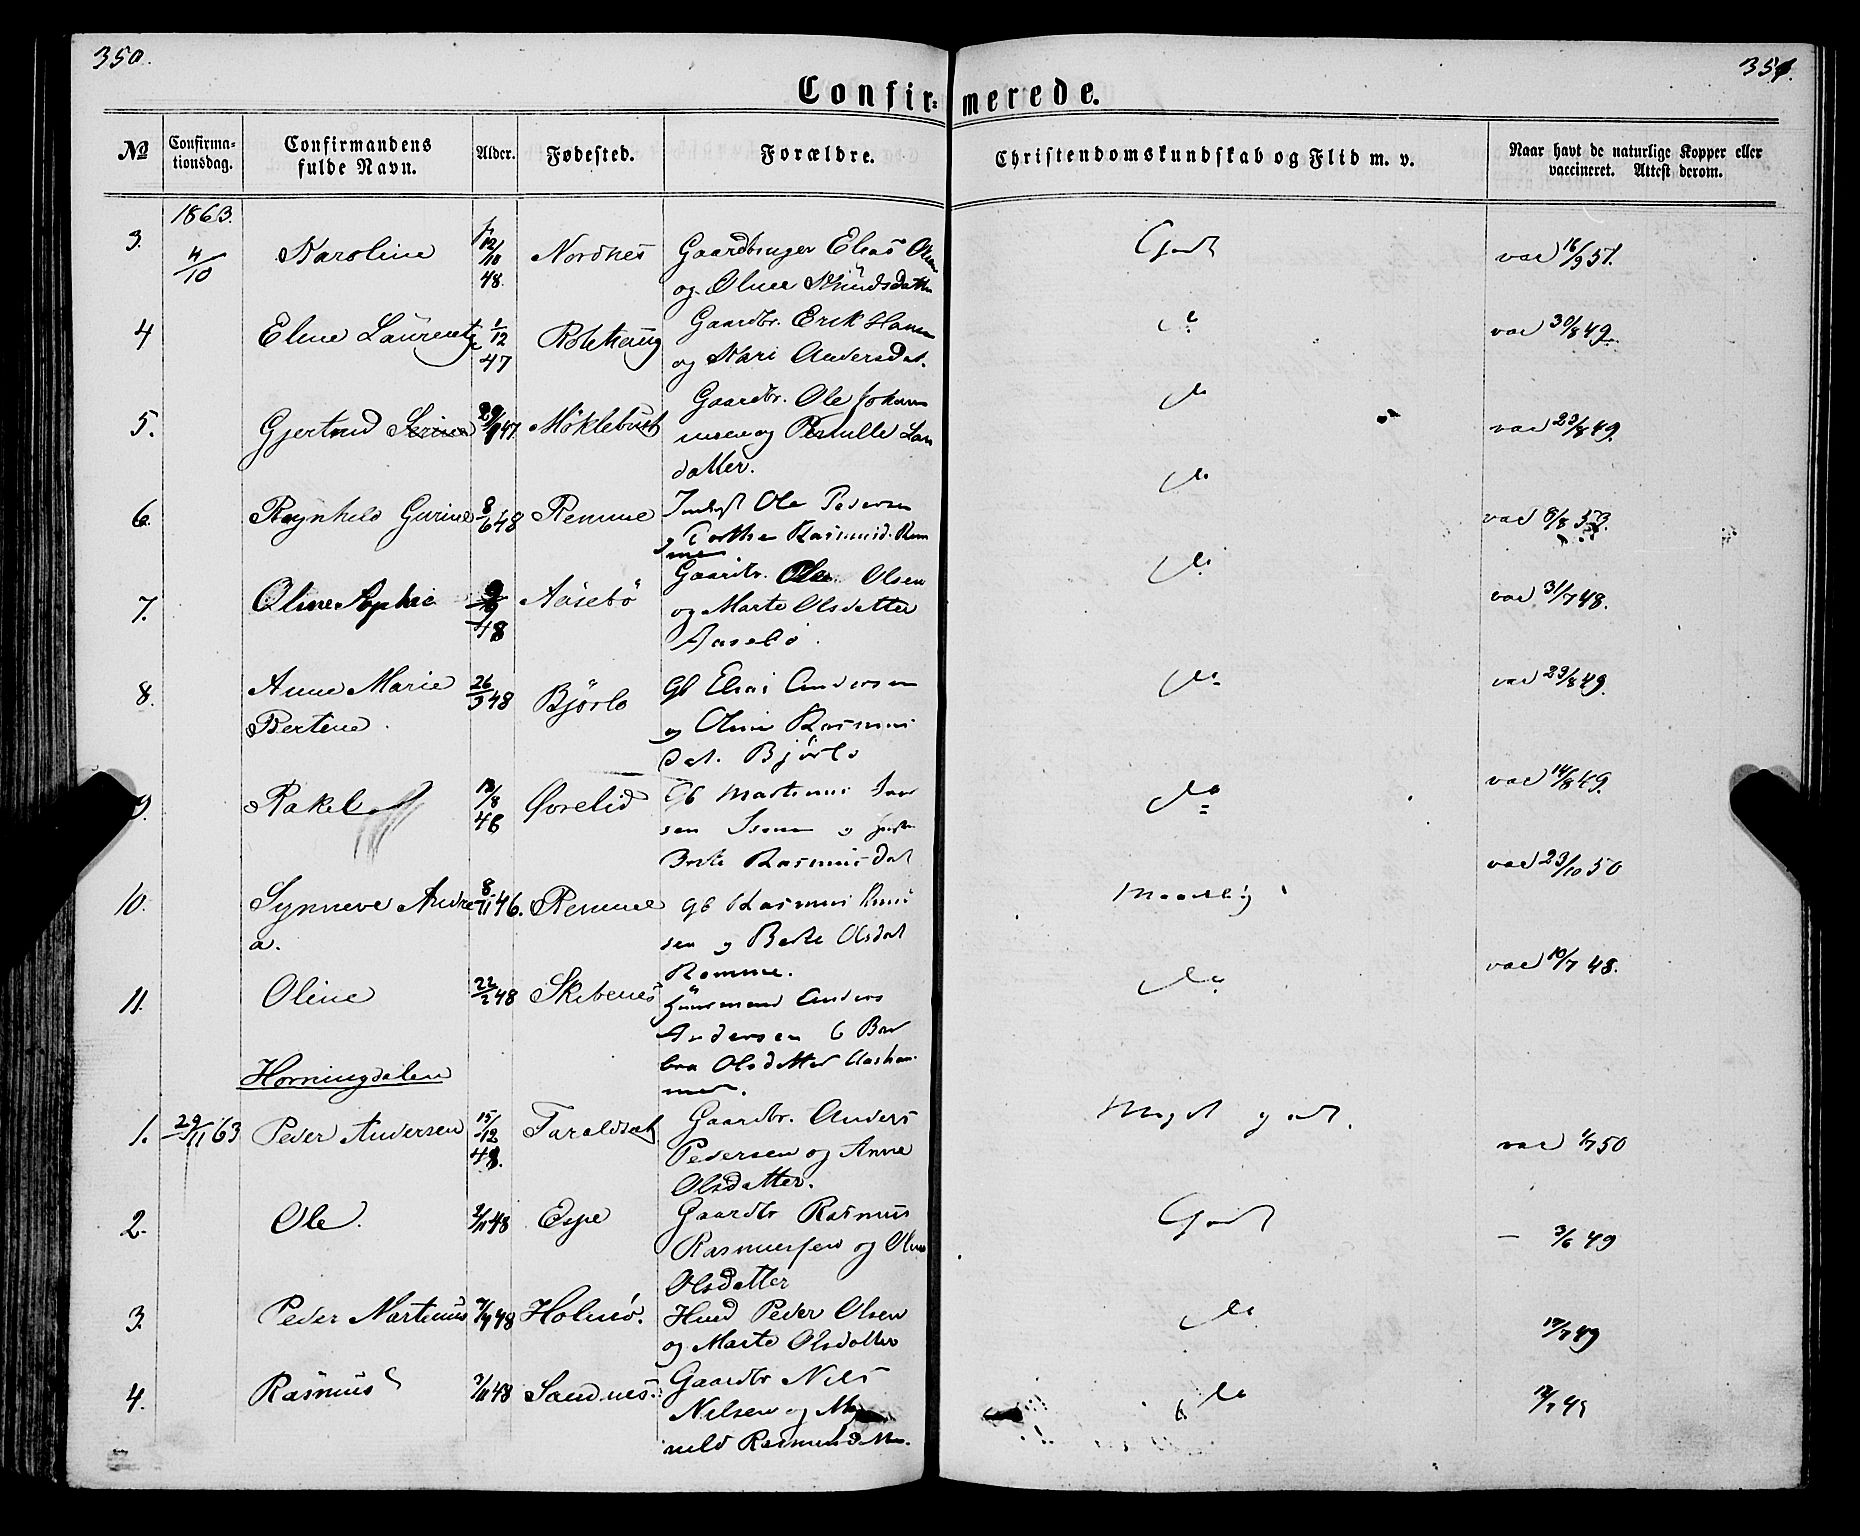 350.
351.
Confir= merede.
No
Confirma-
tionsdag.
Confirmandens
fulde Navn.
Alder.
Fødested.
Forældre.
Christendomskundskab og Flid m. v.
Naar havt de naturlige Kopper eller
vaccineret. Attest derom.
1863.
3. 4/10 Karoline 12/10 48. Nordnes Gaardbruger Elias Olsen
og Oline Knudsdatter
Godt
vac 16/9 51.
4 Eline Laurentze 1/12 47 Gaardbr. Erik Hansen
og Kari Andersdat.
do
vac 30/8 49.
5. Gjertrud Serine 29/9 47 Møklebust Gaardbr. Ole Johan
nesen og Pernille Lars
datter.
do
vac 23/8 49.
6. Ragnhild Gurine 8/6 48 Remme Ole Pedersen
og Dorthe Rasmusd. Rem
me
do
vac 8/8 53.
7. Oline Sophie 9/9 48 Aasebø Gaardbr. Ole Olsen
og Marte Olsdatter
Aasebø.
do
vac 31/7 48.
8. Anne Marie
Bertine. 26/3 48 Bjørlo Gb Elias Andersen
og Oline Rasmus
dat. Bjørlo
do
vac 23/8 49.
9. Rakel 48 Øvrelid Gb Martinus Iver
sen
Brite Rasmusdat
do
vac 14/8 49.
10. Synneve Andre
a. 8/11 46. Remme Gb Rasmus
sen og Berte Olsdat
Remme.
Maadelig
vac 23/10 50
11. Oline 22/2 48 Skibenes Huusmand Anders
Andersen & Bar
bra Olsdatter Aasham
mer.
do
vac 10/7 48.
Horningdalen
1. 29/11 63 Peder Andersen 15/12 48. Taraldsæt Gaardbr. Anders
Pedersen og Anne
Olsdatter.
Meget godt.
vac 1/7 50
2. Ole. 2/11 48 Espe Gaardbr Rasmus
Rasmussen og Oline
Olsdatter
Godt
— 3/6 49
3. Peder Martinus 7/9 48 Holmø. Husd Peder Olsen
og Marte Olsdatter
do
17/7 49
4. Rasmus 48 Sandnes. Gaardbr Nils
Nilsen og
Rasmusdtr.
do